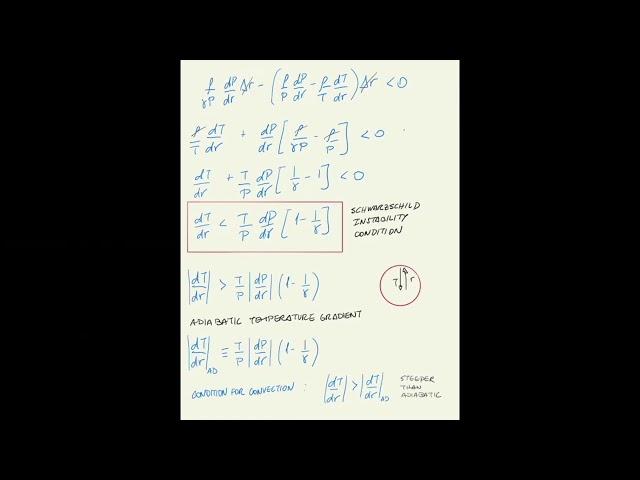 ρ/γP dP/dr Δr − (ρ/P dP/dr − ρ/T dT/dr) Δr < 0
ρ/T dT/dr + dP/dr [ρ/γP − ρ/P] < 0
dT/dr + T/P dP/dr [1/γ − 1] < 0
dT/dr < T/P dP/dr [1 − 1/γ]
SCHWARZSCHILD
INSTABILITY
CONDITION
|dT/dr| > T/P |dP/dr| (1 − 1/γ)
T r
ADIABATIC TEMPERATURE GRADIENT
|dT/dr|AD ≡ T/P |dP/dr| (1 − 1/γ)
CONDITION FOR CONVECTION : |dT/dr| > |dT/dr|AD
STEEPER
THAN
ADIABATIC